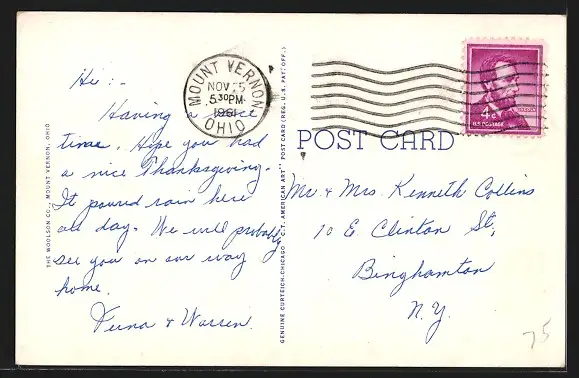 Hi :-
Having a nice
time. Hope you had
a nice Thanksgiving.
It poured rain here
all day. We will probably
see you on our way
home.
& Warren.
THE WOOLSON CO., MOUNT VERNON, OHIO
MOUNT VERNON
NOV 25
5 30 PM
1961
OHIO
GENUINE CURTEICH-CHICAGO "C.T. AMERICAN ART" POST CARD (REG. U.S. PAT. OFF.)
4¢
U.S. POSTAGE
POST CARD
Mr. & Mrs. Kenneth Collins
10 E. Clinton St,
Binghamton
N.Y.
75